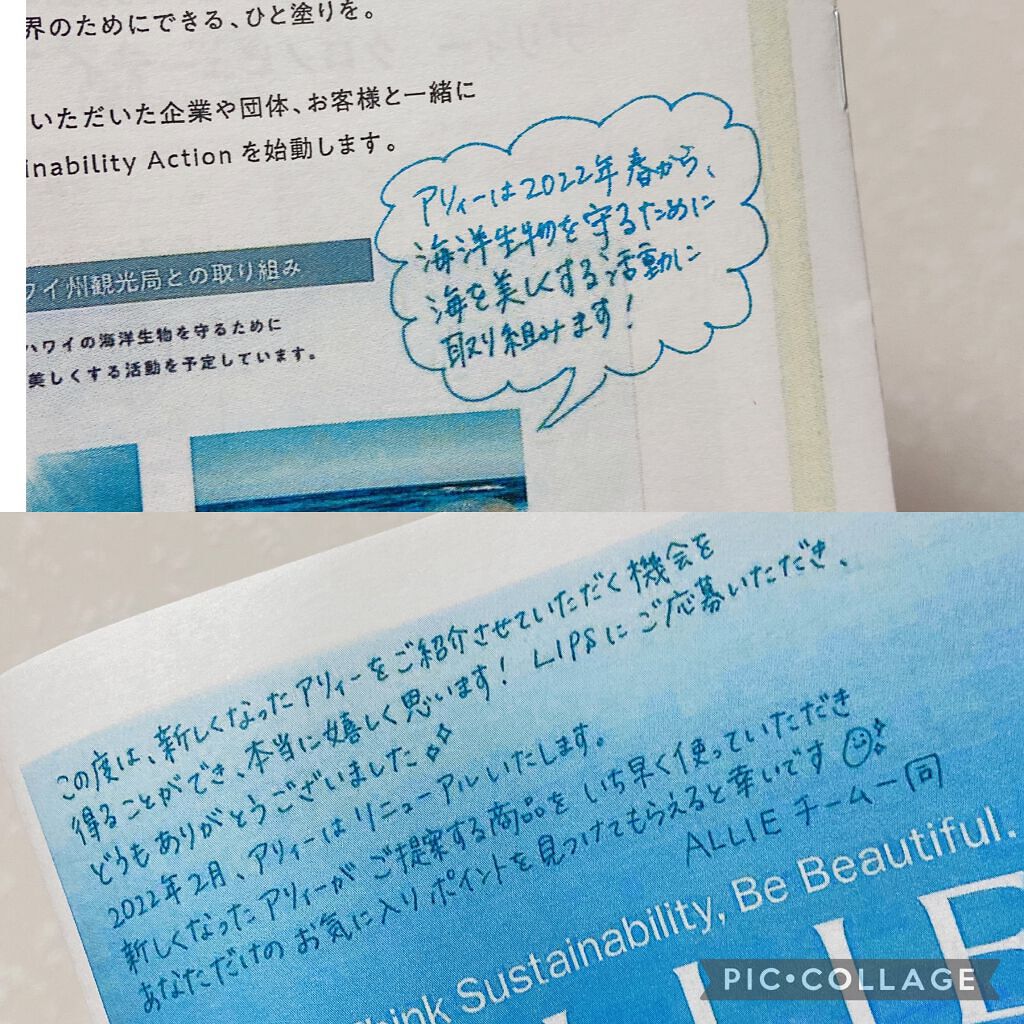 界のためにできる、ひと塗りを。
いただいた企業や団体、お客様と一緒に
inability Action を始動します。
アリィーは2022年春から、
海洋生物を守るために
海を美しくする活動に
取り組みます!
ワイ州観光局との取り組み
ハワイの海洋生物を守るために
美しくする活動を予定しています。
この度は、新しくなったアリィーをご紹介させていただく機会を
得ることができ、本当に嬉しく思います! LIPSにご応募いただき、
どうもありがとうございました
2022年2月、アリィーはリニューアルいたします。
新しくなったアリィーがご提案する商品をいち早く使っていただき
あなただけのお気に入りポイントを見つけてもらえると幸いです
ALLIE チーム一同
Think Sustainability, Be Beautiful.
LLIE
PIC•COLLAGE